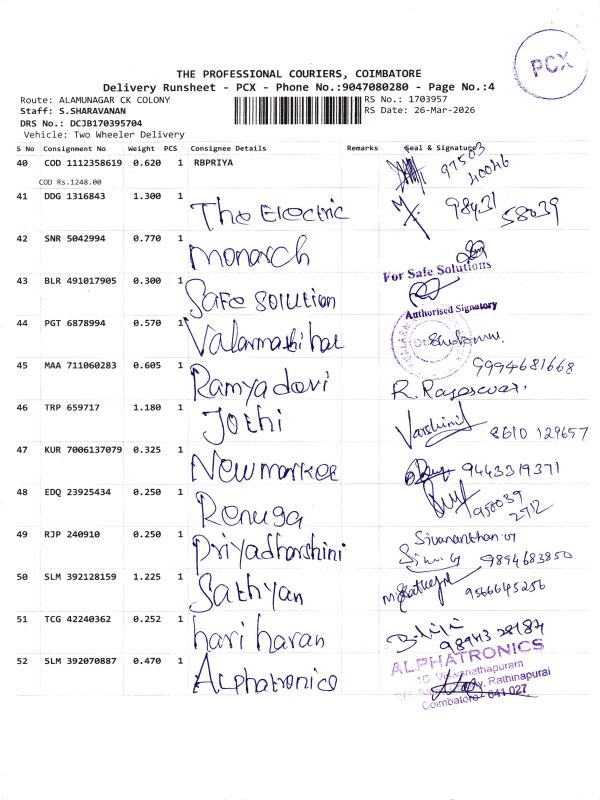 PCX
THE PROFESSIONAL COURIERS, COIMBATORE
Delivery Runsheet - PCX - Phone No.:9047080280 - Page No.:4
Route: ALAMUNAGAR CK COLONY
RS No.: 1703957
Staff: S.SHARAVANAN
RS Date: 26-Mar-2026
DRS No.: DCJB170395704
Vehicle: Two Wheeler Delivery
S No Consignment No Weight PCS Consignee Details Remarks Seal & Signature
40 COD 1112358619 0.620 1 RBPRIYA 97503 40046
COD Rs.1248.00
41 DDG 1316843 1.300 1 The Electric 98431 58039
42 SNR 5042994 0.770 1 monarch
For Safe Solutions
43 BLR 491017905 0.300 1 Safe Solution
Authorised Signatory
44 PGT 6878994 0.570 1 Valarmathi hos
45 MAA 711060283 0.605 1 Ramya devi 9994681668
R. Rajeswari
46 TRP 659717 1.180 1 Jothi Varshini 8610 129657
47 KUR 7006137079 0.325 1 New market 9443319371
48 EDQ 23925434 0.250 1 Renuga 950039 2712
49 RJP 240910 0.250 1 Priyadharshini Sivananthan G 9894683850
50 SLM 392128159 1.225 1 Sathyan 9566645256
51 TCG 42240362 0.252 1 hari haran 98943 28184
52 SLM 392070887 0.470 1 Alphatronics
ALPHATRONICS
Viswanathapuram
Rathinapuri
Coimbatore - 641 027